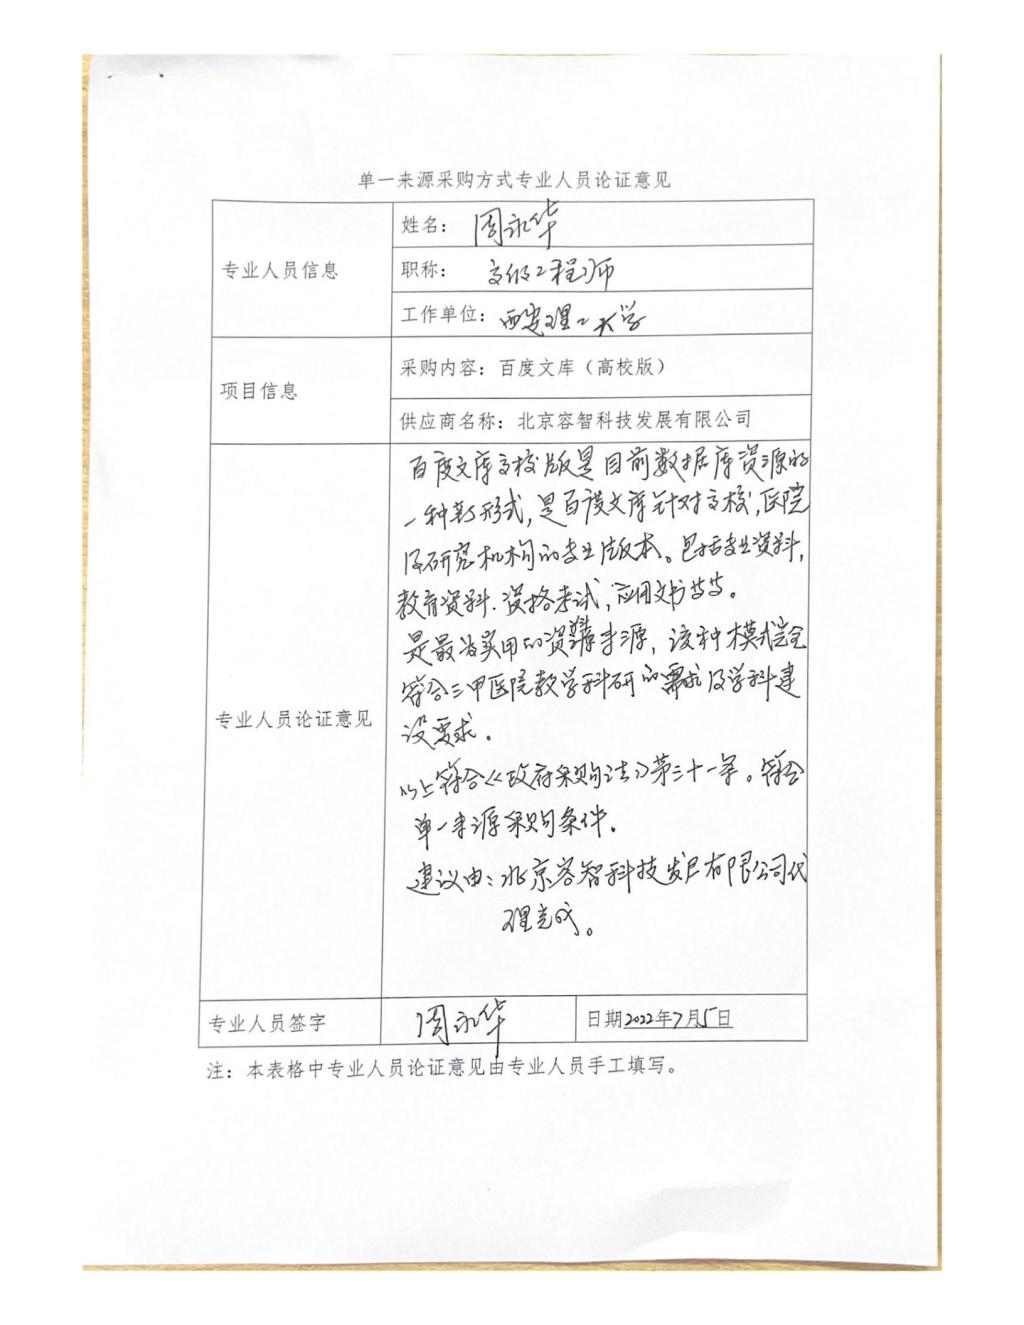 单一来源采购方式专业人员论证意见
专业人员信息
姓名：周永华
职称：高级工程师
工作单位：西安理工大学
项目信息
采购内容：百度文库（高校版）
供应商名称：北京容智科技发展有限公司
专业人员论证意见
百度文库高校版是目前数据库资源的
一种新形式，是百度文库针对高校，医院
及研究机构的专业版本。包括专业资料，
教育资料、资格考试，应用文书等等。
是最为实用的资源来源，该种模式完全
符合三甲医院教学科研的需求及学科建
设要求。
以上符合《政府采购法》第三十一条。符合
单一来源采购条件。
建议由：北京容智科技发展有限公司代
理完成。
专业人员签字
周永华
日期2022年7月5日
注：本表格中专业人员论证意见由专业人员手工填写。